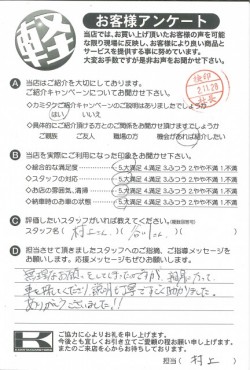 軽
お客様アンケート
当店では、お買い上げ頂いたお客様の声を可能
な限り現場に反映し、お客様により良い商品と
サービスを提供する事に努めています。
大変お手数ですが是非お声をお聞かせ下さい。
A 当店はご紹介を大切にしております。
ご紹介キャンペーンについてお聞かせ下さい。
検印
2.11.28
◇カミタクご紹介キャンペーンのご説明はありましたでしょうか
はい いいえ
◇具体的にご紹介頂ける方とのご関係をお聞かせ頂けますでしょうか
ご親族 ご友人 職場の方 機会があれば紹介したい
B 当店を実際にご利用になった印象をお聞かせ下さい。
◇総合的な満足度 5.大満足 4.満足 3.ふつう 2.やや不満 1.不満
◇スタッフの対応 5.大満足 4.満足 3.ふつう 2.やや不満 1.不満
◇お店の雰囲気、清掃 5.大満足 4.満足 3.ふつう 2.やや不満 1.不満
◇納車時のお車の状態 5.大満足 4.満足 3.ふつう 2.やや不満 1.不満
C 評価したいスタッフがいれば教えてください。(複数回答可)
スタッフ名( 村上さん )( )
D 担当させて頂きましたスタッフへのご指導、ご指導メッセージを
お願いします。応援メッセージもお願いします。
ありがとうございました!!
K
ご協力に心よりお礼を申し上げます。
今後とも宜しくお引き立てご愛顧の程お願い申し上げます。
またのご来店を心からお待ちしております。
担当( 村上 )